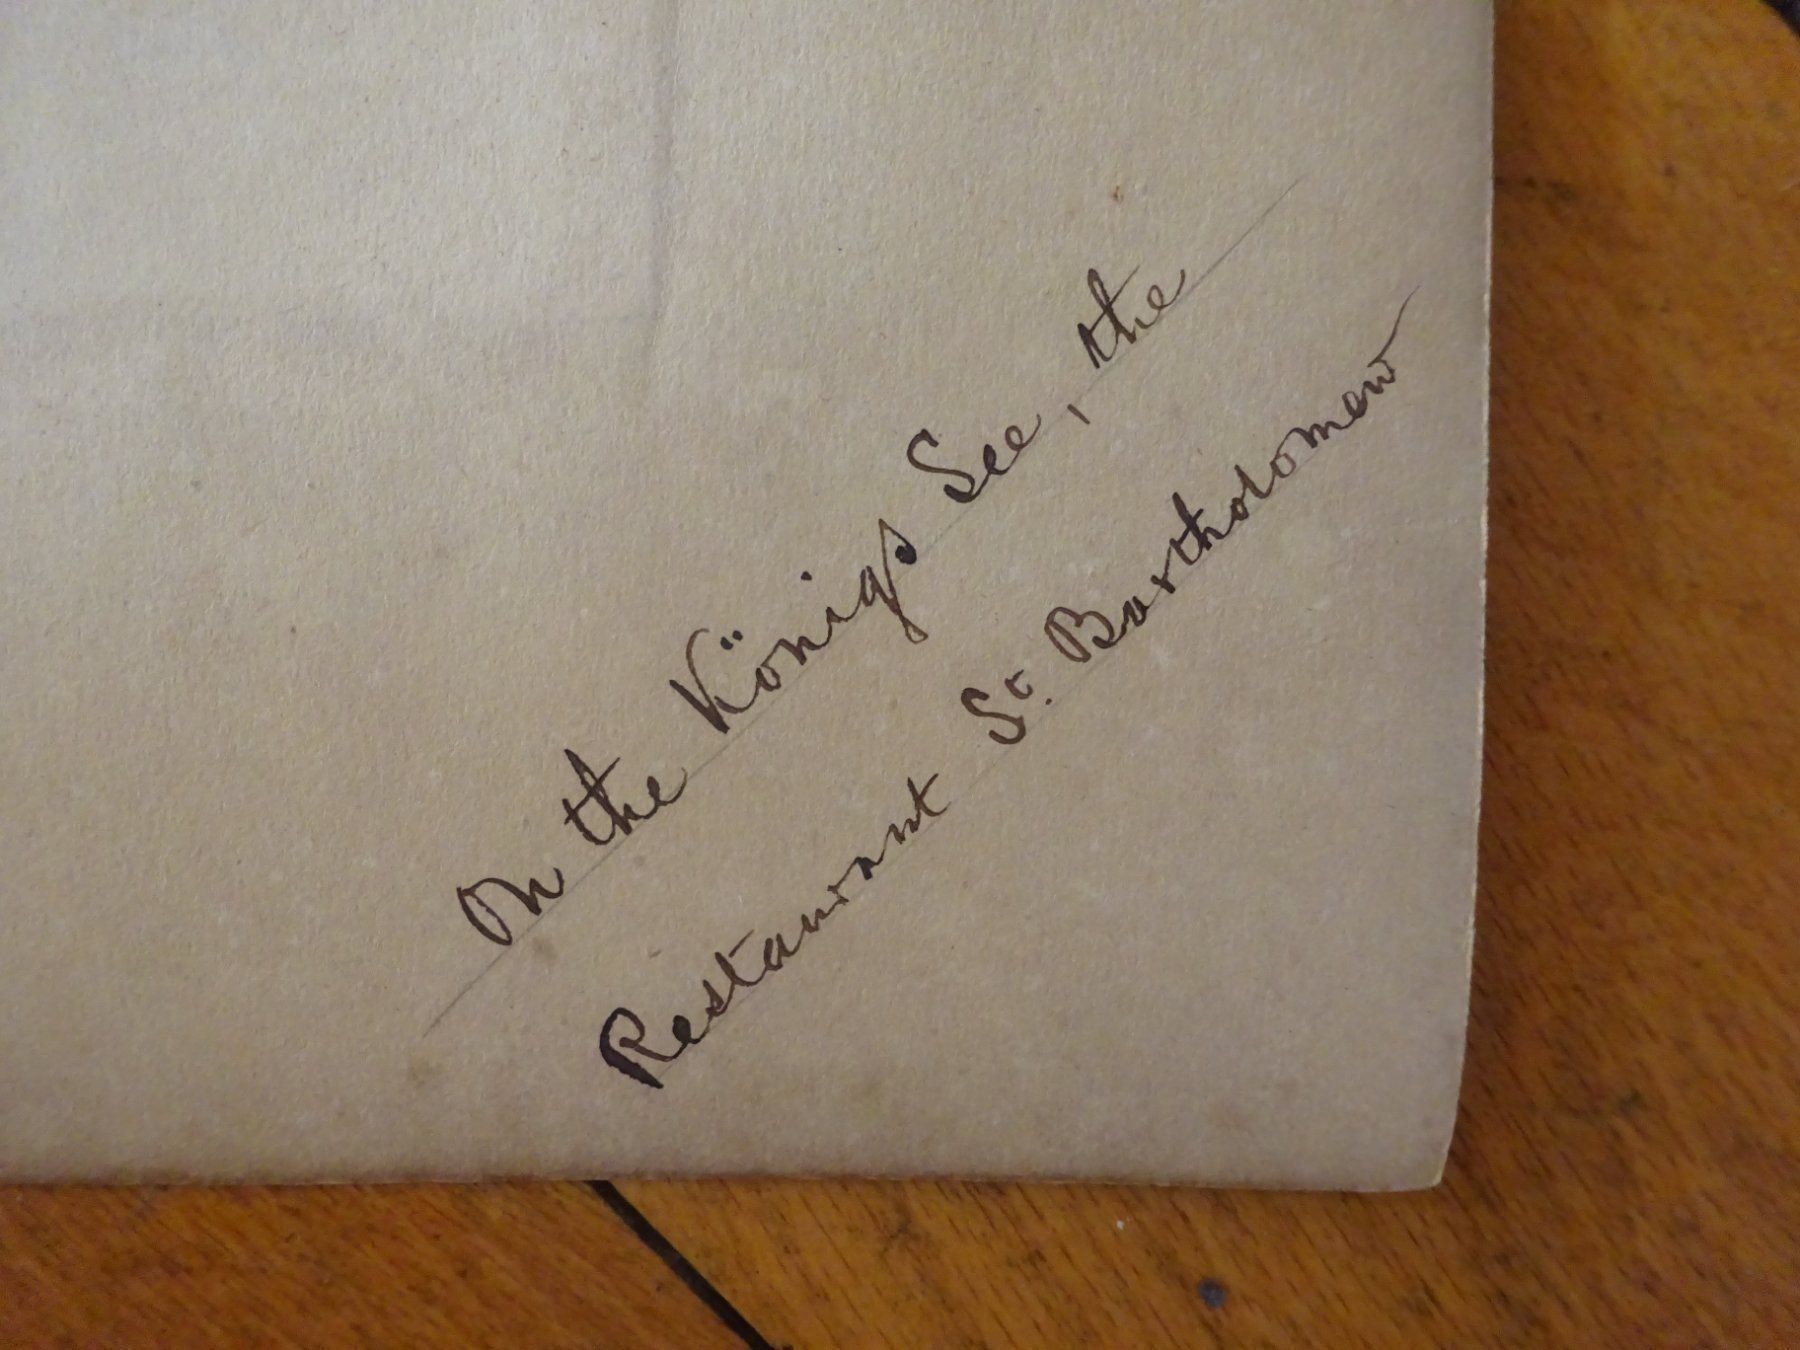 On the Königs See, the
Restaurant St. Bartholomew